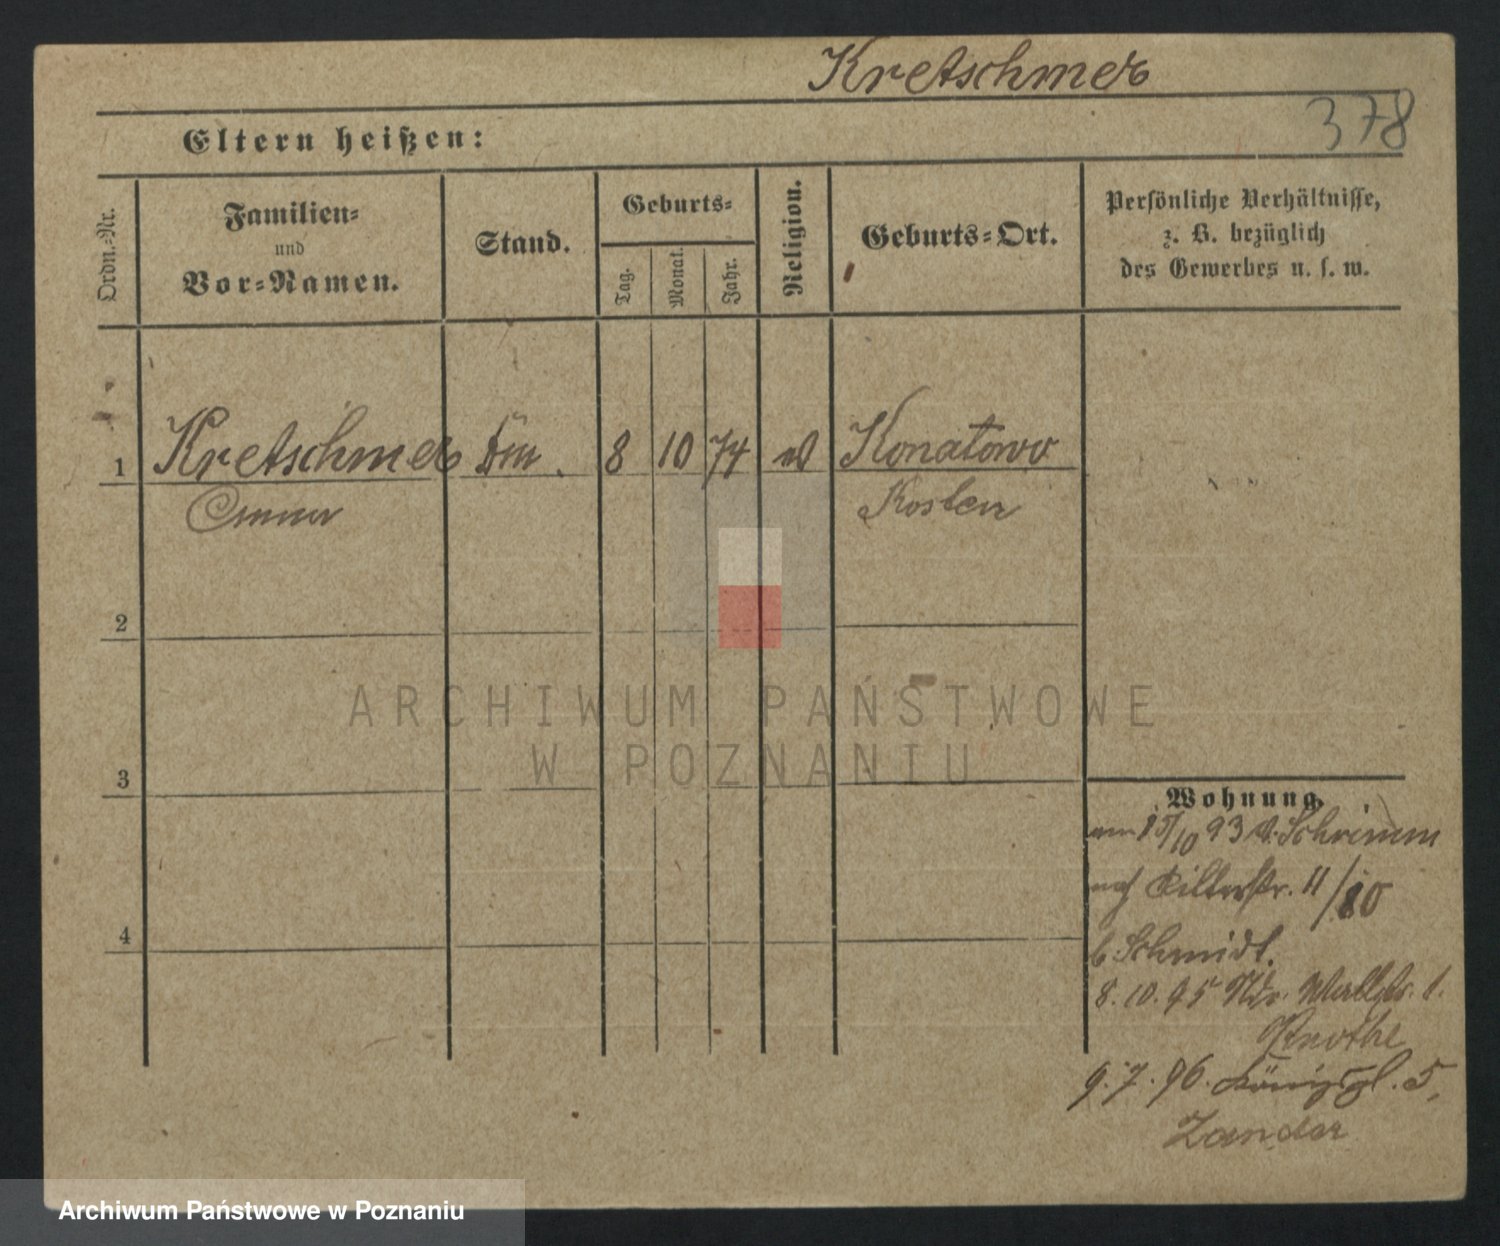 Kretschmer
378
Eltern heißen:
Ordn.-Nr.
Familien-
und
Vor-Namen.
Stand.
Geburts-
Tag.
Monat.
Jahr.
Religion.
Geburts-Ort.
Persönliche Verhältnisse,
z. B. bezüglich
des Gewerbes u. s. w.
1 Kretschmer 8 10 74 Konatowo
Kosten
2
3
4
Wohnung.
am 15/10 93 v. Schrimm
nach Ritterstr. 11/10
b. Schmidt.
8. 10. 95 Ndr. Wallstr. 1.
Knothe
9. 7. 96. Königspl. 5,
Zander
ARCHIWUM PAŃSTWOWE
W POZNANIU
Archiwum Państwowe w Poznaniu